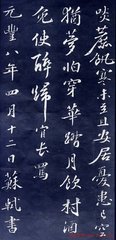 啖蔗飢寒未至且安居憂患已空
猶夢怕穿華踏月飲村酒
免使醉歸官長罵
元豐八年四月十二日蘇軾書